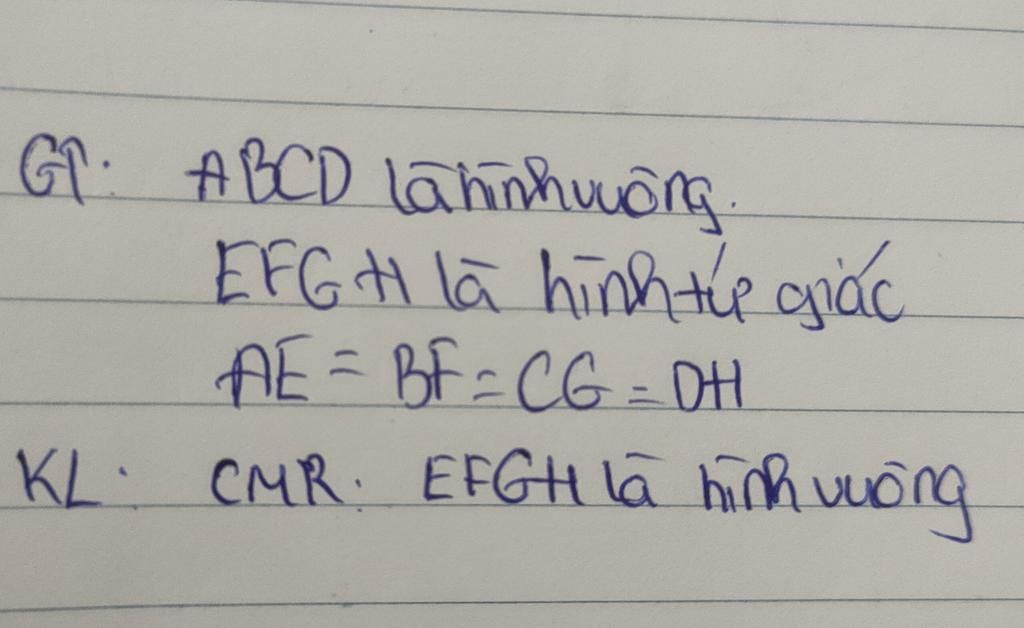 GT: ABCD là hình vuông.
EFGH là hình tứ giác
AE = BF = CG = DH
KL. CMR. EFGH là hình vuông